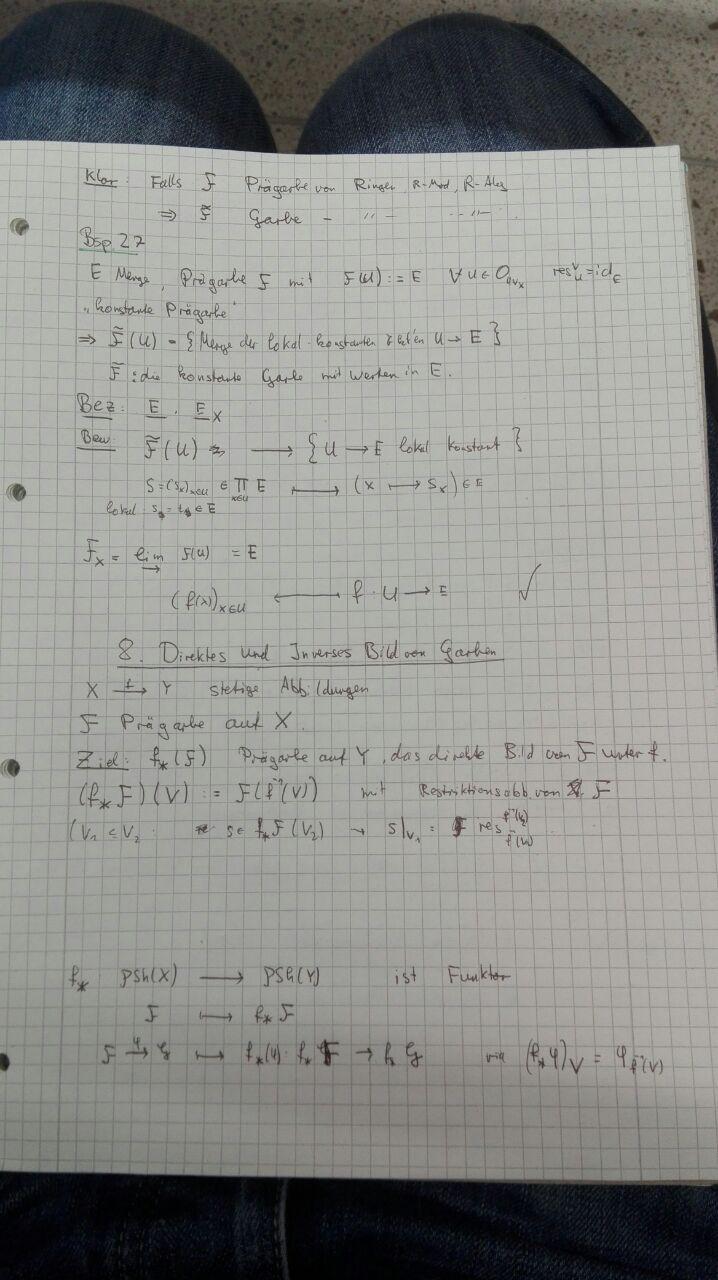 Klar: Falls F Prägarbe von Ringen, R-Mod, R-Alg
⇒ F̃ Garbe - " - - " - .
Bsp 27
E Menge, Prägarbe F mit F(U) := E ∀ U ∈ Ouv_X res^V_U = id_E
"konstante Prägarbe"
⇒ F̃(U) = { Menge der lokal-konstanten Fkt'en U → E }
F̃ : die konstante Garbe mit Werten in E.
Bez: E, E_X
Bew: F̃(U) ⟶ { U → E lokal konstant }
S = (s_x)_{x∈U} ∈ ∏_{x∈U} E ⟼ (x ⟼ s_x) ∈ E
lokal: s = t ∈ E
F_x = lim→ F(U) = E
(f(x))_{x∈U} ⟵ f : U → E ✓
8. Direktes und Inverses Bild von Garben
X →^f Y stetige Abbildungen
F Prägarbe auf X.
Ziel: f_*(F) Prägarbe auf Y, das direkte Bild von F unter f.
(f_* F)(V) := F(f⁻¹(V)) mit Restriktionsabb von F
(V₁ ⊆ V₂ s ∈ f_* F(V₂) → s|_{V₁} = res^{f⁻¹(V₂)}_{f⁻¹(V₁)}
f_* PSh(X) ⟶ PSh(Y) ist Funktor
F ⟼ f_* F
F →^φ G ⟼ f_*(φ): f_* F → f_* G via (f_* φ)_V = φ_{f⁻¹(V)}